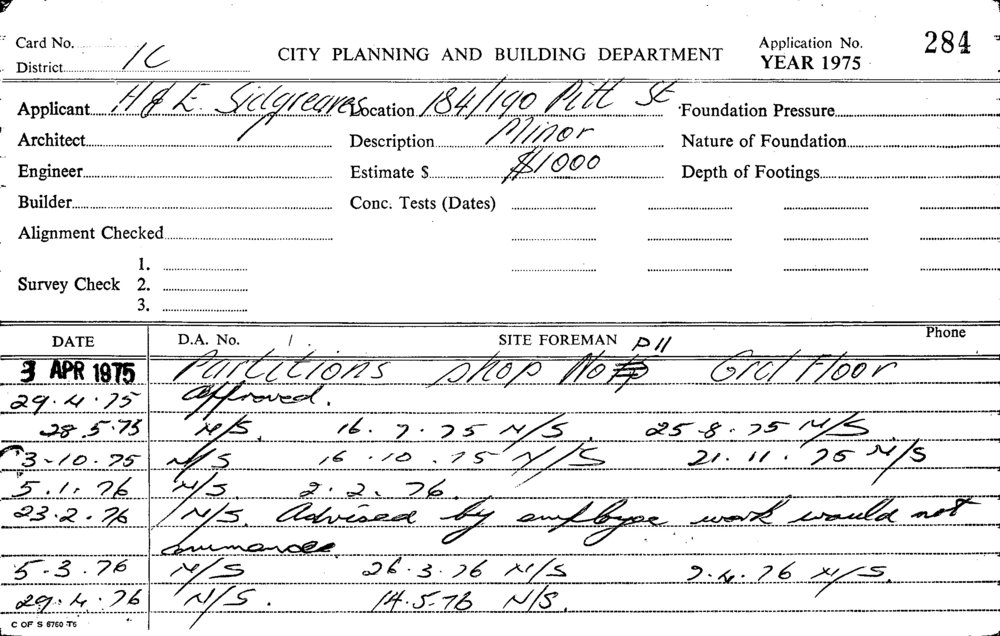 Card No.
District 1C
CITY PLANNING AND BUILDING DEPARTMENT
Application No. 284
YEAR 1975
Applicant H & E. Sidgreaves Location 184/190 Pitt St Foundation Pressure
Architect Description Minor Nature of Foundation
Engineer Estimate $ $1000 Depth of Footings
Builder Conc. Tests (Dates)
Alignment Checked
1.
Survey Check 2.
3.
DATE D.A. No. SITE FOREMAN Phone
P11
3 APR 1975 Partitions shop No Grd Floor
29.4.75 Approved.
28.5.75 N/S. 16.7.75 N/S. 25.8.75 N/S
3-10.75 N/S 16.10.75 N/S 21.11.75 N/S
5.1.76 N/S. 2.2.76.
23.2.76 N/S. Advised by employee work would not
5.3.76 N/S 26.3.76 N/S 7.4.76 N/S.
29.4.76 N/S. 14.5.76 N/S.
C OF S 6760-T6